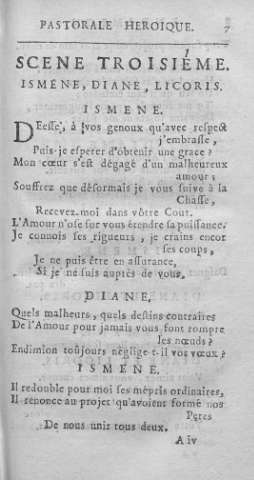 PASTORALE HEROIQUE. 7
SCENE TROISIÉME.
ISMÉNE, DIANE, LICORIS.
ISMENE.
DEesse, à vos genoux qu'avec respect
j'embrasse,
Puis-je esperer d'obtenir une grace?
Mon cœur s'est dégagé d'un malheureux
amour;
Souffrez que désormais je vous suive à la
Chasse,
Recevez-moi dans vôtre Cour.
L'Amour n'ose sur vous étendre sa puissance.
Je connois ses rigueurs, je crains encor
ses coups,
Je ne puis être en assurance,
Si je ne suis auprès de vous.
DIANE.
Quels malheurs, quels destins contraires
De l'Amour pour jamais vous font rompre
les nœuds?
Endimion toûjours néglige-t-il vos vœux?
ISMÉNE.
Il redouble pour moi ses mépris ordinaires,
Il renonce au projet qu'avoient formé nos
Peres
De nous unir tous deux.
A iv